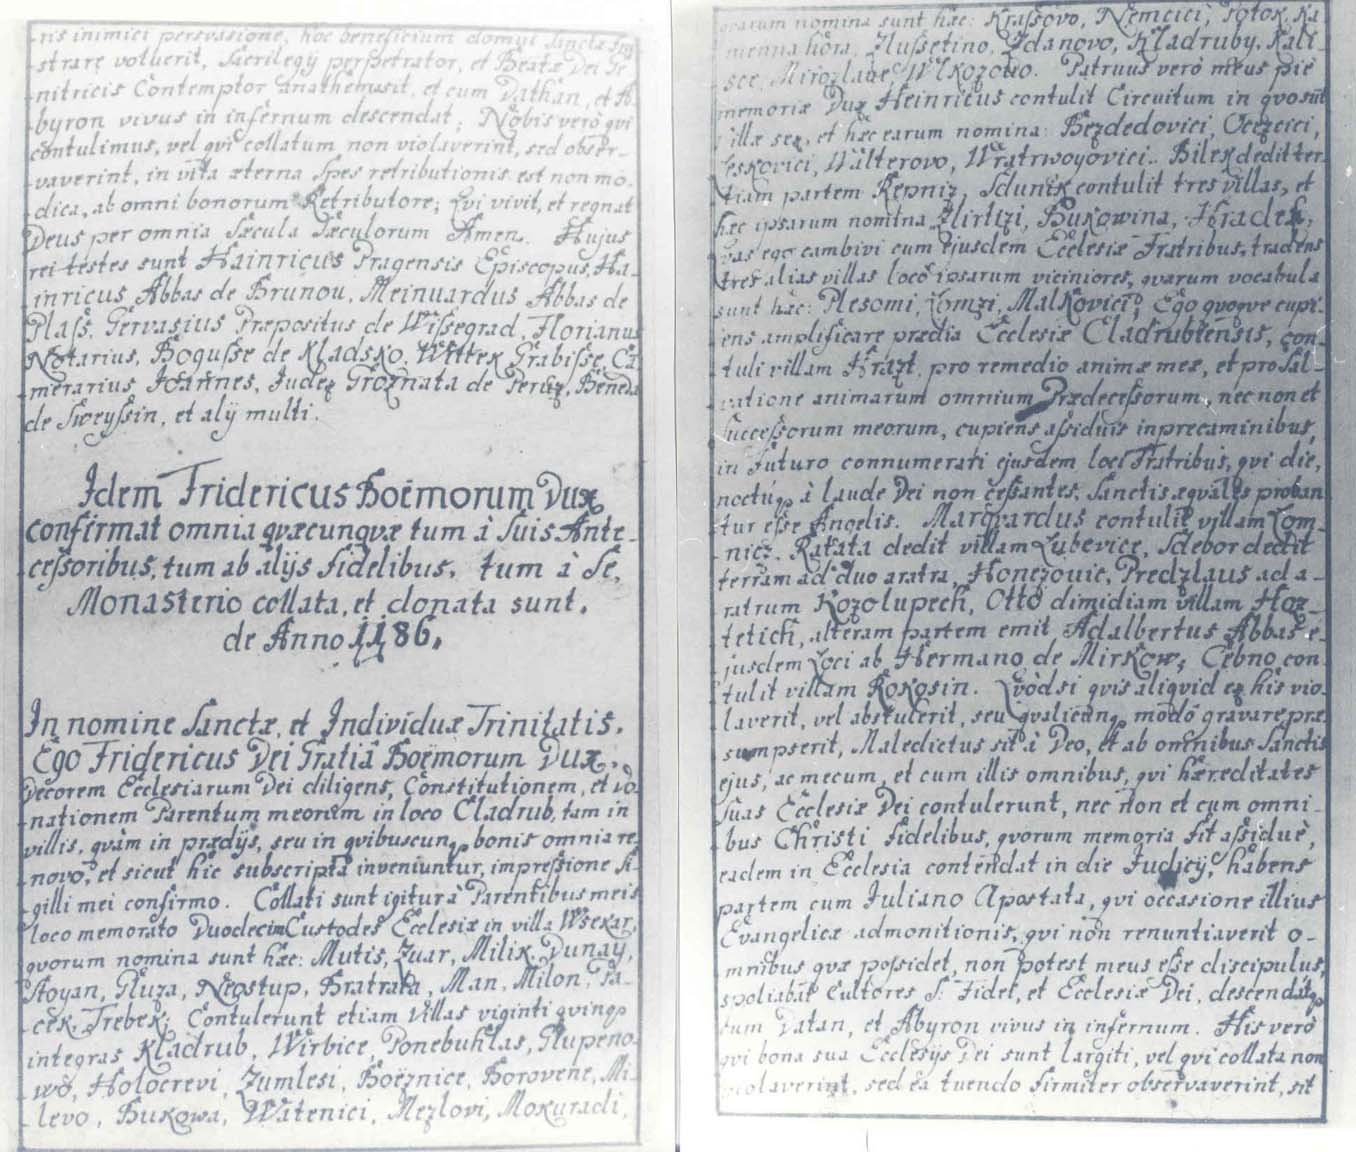 ris inimici persvasione, hoc beneficium domui sanctæ
strare voluerit, Sacrilegÿ perpetrator, et Beatæ Dei Ge-
nitricis Contemptor anathema sit, et cum Dathan, et A-
byron vivus in infernum descendat; Nobis verò qvi
contulimus, vel qvi collatum non violaverint, sed obser-
vaverint, in vita æterna Spes retributionis est non mo-
dica, ab omni bonorum Retributore; Qvi vivit, et regnat
Deus per omnia Sæcula Sæculorum Amen. Hujus
rei testes sunt Hainricus Pragensis Episcopus, Ha-
inricus Abbas de Brunou, Meinuardus Abbas de
Plass, Gervasius Præpositus de Wissegrad, Florianus
Notarius, Bogusse de Kladsko, Wittek Grabisse, Ca-
merarius Joannes, Judex Groznata de Peruz, Beneda
de Sweyssin, et alÿ multi.
Idem Fridericus Boëmorum Dux
confirmat omnia qvæcunqvæ tum à suis Ante-
cessoribus, tum ab alÿs fidelibus, tum à Se,
Monasterio collata, et donata sunt.
de Anno 1186.
In nomine Sanctæ, et Individuæ Trinitatis.
Ego Fridericus Dei Gratiâ Boëmorum Dux,
Decorem Ecclesiarum Dei diligens, Constitutionem, et do-
nationem Parentum meorum in loco Cladrub, tam in
villis, qvàm in prædÿs, seu in qvibuscunq bonis omnia re-
novo, et sicut hic subscripta inveniuntur, impressione si-
gilli mei confirmo. Collati sunt igitur à Parentibus meis
loco memorato Duodecim Custodes Ecclesiæ in villa Wsekar,
qvorum nomina sunt hæc: Mutis, Zuar, Milik, Dunaÿ,
Stoyan, Gluza, Neostup, Bratrata, Man, Milon, Pa-
cek, Trebek; Contulerunt etiam Villas viginti qvinq
integras Kladrub, Wirbice, Ponebuhlas, Glupeno-
wo, Holocrevi, Zumlesi, Boëznice, Borovene, Mi-
levo, Bukowa, Watenici, Mezlovi, Mokuradi,
qvarum nomina sunt hæc: Krassovo, Nemcici, Potok, Ka-
menna hora, Hussetino, Zdanovo, Kladruby, Kali-
sce, Mirozlaue, Wlkozovo. Patruus verò meus piæ
memoriæ Dux Heinricus contulit Circuitum in qvo sūt
villæ sex, et hæc earum nomina: Bezdedovici, Ocezcici,
Leskovici, Walterovo, Wratrwoyovici. Bilek dedit ter-
tiam partem Repniz, Sdunik contulit tres villas, et
hæc ipsarum nomina Hirtizi, Bukowina, Hradek,
vas ego cambivi cum ejusdem Ecclesiæ Fratribus, tradens
tres alias villas loco ipsarum viciniores, qvarum vocabula
sunt hæc: Plesomi, Lomzi, Malkovici; Ego qvoqve cupi-
ens amplificare prædia Ecclesiæ Cladrubiensis, con-
tuli villam Hrazt, pro remedio animæ meæ, et pro Sal-
vatione animarum omnium Prædecessorum, nec non et
successorum meorum, cupiens assiduis in precaminibus,
in futuro connumerari ejusdem loci Fratribus, qvi die,
noctuq à laude Dei non cessantes, Sanctis æqvales proban-
tur esse Angelis. Marqvardus contulit villam Lom-
nicz, Rakata dedit villam Lubevice, Sdebor dedit
terram ad duo aratra, Honezovic, Predzlaus ad a-
ratrum Kozolupech, Otto dimidiam villam Hoz-
tetich, alteram partem emit Adalbertus Abbas e-
jusdem Loci ab Hermano de Mirkow; Cebno con-
tulit villam Rokosin. Qvòd si qvis aliqvid ex his vio-
laverit, vel abstulerit, seu qvalicunq modo gravare præ-
sumpserit, Maledictus sit à Deo, et ab omnibus Sanctis
ejus, ac mecum, et cum illis omnibus, qvi hæreditates
suas Ecclesiæ Dei contulerunt, nec non et cum omni-
bus Christi fidelibus, qvorum memoria fit assiduè,
eadem in Ecclesia contendat in die Judicÿ, habens
partem cum Juliano Apostata, qvi occasione illius
Evangelicæ admonitionis, qvi non renuntiaverit o-
mnibus qvæ possidet, non potest meus esse discipulus,
spoliabat cultores S. Fidei, et Ecclesiæ Dei, descendatq
cum Datan, et Abyron vivus in infernum. His verò
qvi bona sua Ecclesÿs Dei sunt largiti, vel qvi collata non
violaverint, sed ea tuendo firmiter observaverint, sit